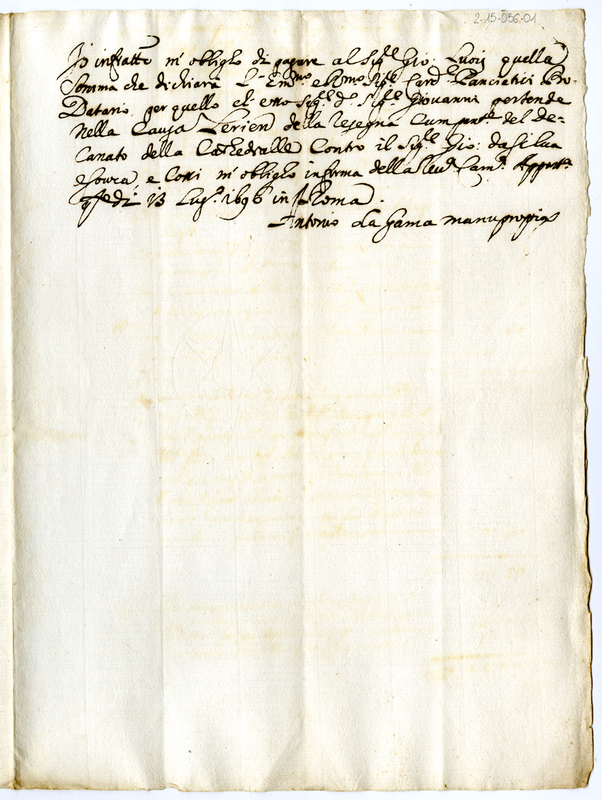 2-15-056-01
Io infratto m'obligho di pagare al Sigre Gio: Luois quella
Somma che dichiara l'Emmo e Rmo Sigre Card Panciatici Pro-
Datario per quello el etto Sigre do Sigre Giovanni pertende
Nella Causa della resegna del de-
canato della Cathedralle Contro il Sigre Gio: da Silua
e Cossi m'obligho in forma della Reud Camra
13 Lugo 1696 in Roma.
Antonio da Gama manu propria